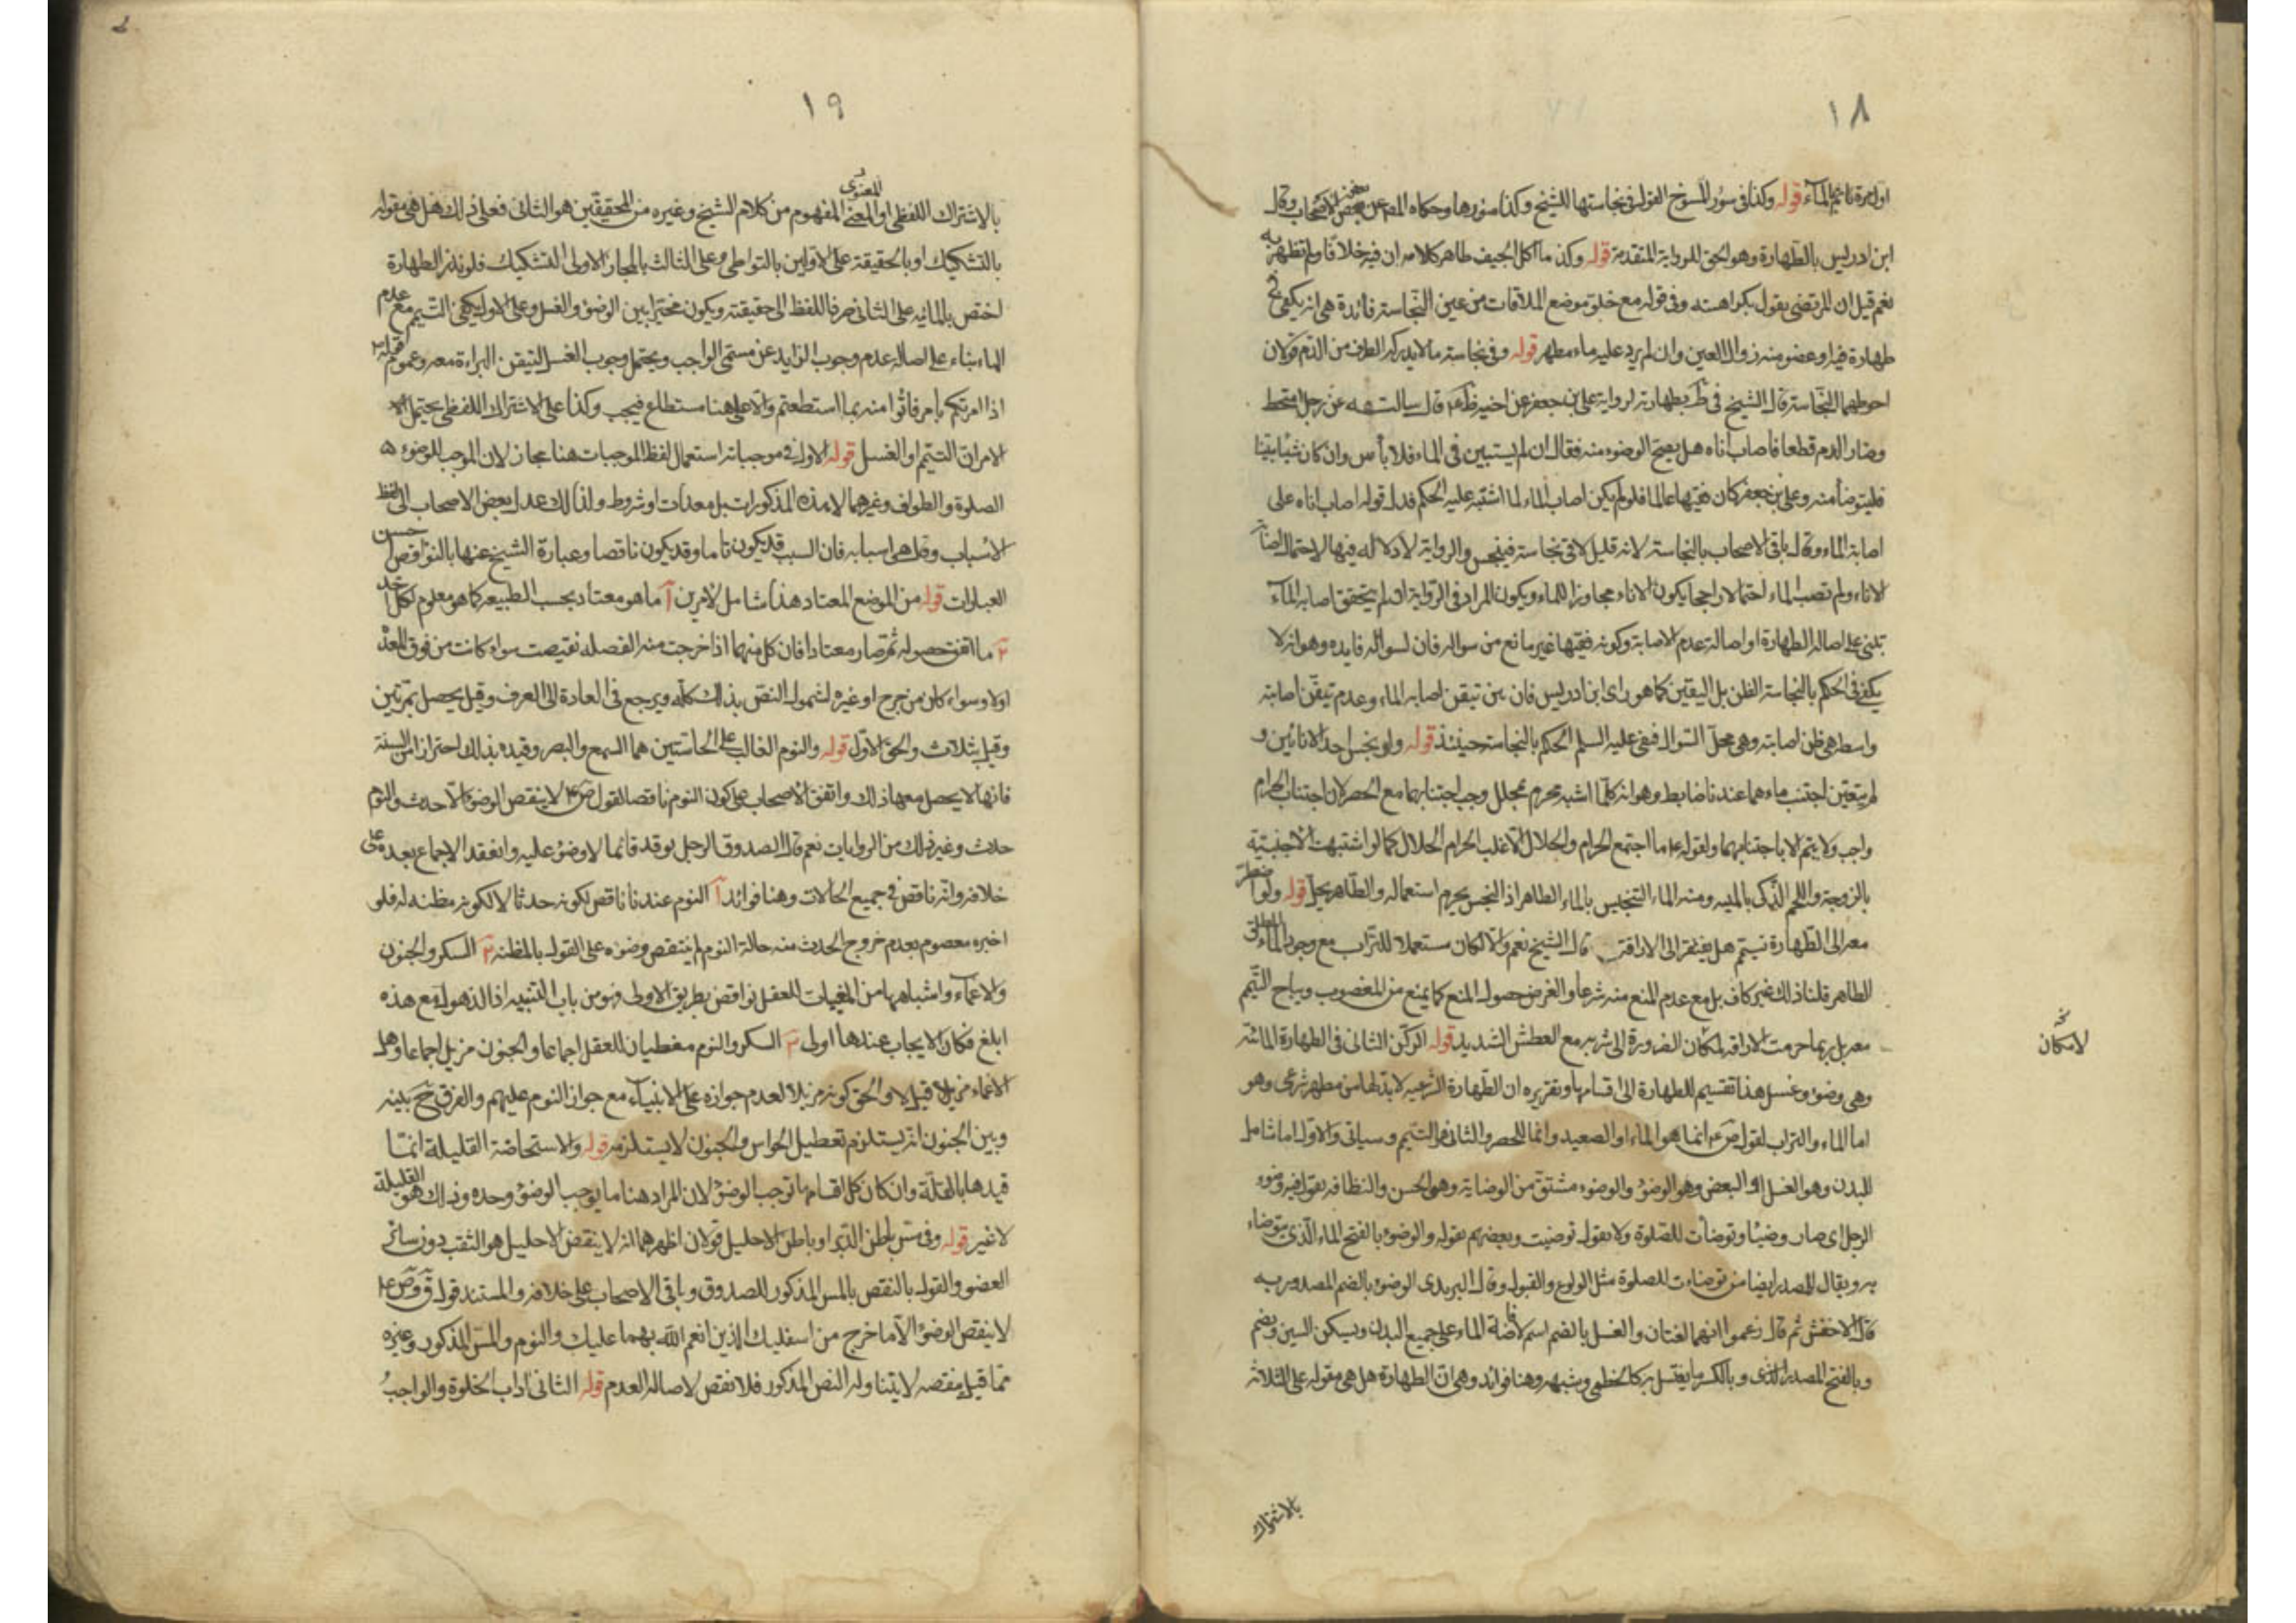 ١٨
اولى مرة ثانيهم الماء قوله وكذا في سؤر المسوخ القول في نجاستها للشيخ وكذا سؤرها وحكاه المصر عن بعض الاصحاب وقال
ابن ادريس بالطهارة وهو الحق للرواية المتقدمة قوله وكذا ما اكل الجيف ظاهر كلامه ان فيه خلافا ولم نظفر به
نعم قيل ان المرتضى يقول بكراهته وفي قوله مع خلو موضع الملاقات من عين النجاسة فائدة هي انه يكفي في
طهارة فيها وعضو منه زوال العين وان لم يرد عليه ماء مطهر قوله وفي نجاسة ما لا يدركه الطرف من الدم قولان
احوطهما النجاسة قال الشيخ في ط بطهارته لرواية علي بن جعفر عن اخيه كاظم ع قال سالته عن رجل امتخط
وصار الدم قطعا فاصاب اناه هل يصح الوضوء منه فقال ان لم يستبين في الماء فلا بأس وان كان شيئا بينا
فليتوضأ منه وعلي بن جعفر كان فقيها عالما فلو لم يكن اصاب الماء لما اشتبه عليه الحكم فدل قوله اصاب اناه على
اصابة الماء وقال باقي الاصحاب بالنجاسة لانه قليل لاقى نجاسة فينجس والرواية لا دلالة فيها لاحتمال اصابة
الاناء ولم تصب الماء احتمالا راجحا يكون الاناء مجاورا للماء ويكون المراد في الرواية ان لم يتحقق اصابة الماء
تبنى على اصالة الطهارة او اصالة عدم الاصابة وكونه فقيها غير مانع من سواله فان لسواله فايده وهو انه لا
يكفي في الحكم بالنجاسة الظن بل اليقين كما هو راى ابن ادريس فان بين تيقن اصابه الماء وعدم تيقن اصابته
واسطه هي ظن اصابته وهي محل السوال فنفى عليه السلم الحكم بالنجاسة حينئذ قوله ولو نجس احد الانائين و
لم يتعين اجتنب ماءهما عندنا ضابط وهو انه كلما اشبه محرم بمحلل وجب اجتنابهما مع الحصر لان اجتناب الحرام
واجب ولا يتم الا باجتنابهما ولقوله ع ما اجتمع الحرام والحلال الا غلب الحرام الحلال كما لو اشتبهت الاجنبية
بالزوجة واللحم الذكي بالميته ومنه الماء النجس بالماء الطاهر اذ النجس يحرم استعماله والطاهر يحل قوله ولو اضطر
معه الى الطهارة تيمم هل يفتقر الى الاراقة قال الشيخ نعم والا لكان مستعملا للتراب مع وجود الماء المطلق
الطاهر قلنا ذلك غير كاف بل مع عدم المنع منه شرعا والغرض حصول المنع كما يمنع من المغصوب ويباح التيمم
معه بل ربما حرمت الاراقه لمكان الضرورة الى شربه مع العطش الشديد قوله الركن الثاني في الطهارة المائية
لامكان
وهي وضوء وغسل هذا تقسيم للطهارة الى اقسامها وتقريره ان الطهارة الشرعيه لابد لها من مطهر شرعي وهو
اما الماء والتراب لقول ص ع انما هو الماء او الصعيد وانما للحصر والثاني هو التيمم وسياتي والاول اما شامل
للبدن وهو الغسل او البعض وهو الوضوء والوضوء مشتق من الوضاءة وهو الحسن والنظافه تقول فيه وضوء
الرجل اى صار وضيئا وتوضأت للصلوة ولا تقول توضيت وبعضهم يقوله والوضوء بالفتح الماء الذي يتوضاء
به ويقال للمصدر ايضا من توضاءت للصلوة مثل الولوع والقبول وقال اليزيدى الوضوء بالضم المصدر به
قال الاخفش ثم قال زعموا انهما لغتان والغسل بالضم اسم لافاضة الماء على جميع البدن ويسكن السين ويضم
وبالفتح المصدر الذى وبالكسر ما يغتسل به كالخطمي وشبهه وهنا فوائد وهي ان الطهارة هل هي مقوله على الثلاثه
بالاشتراك
١٩
بالاشتراك اللفظي او المعنوي المفهوم من كلام الشيخ وغيره من المحققين هو الثاني فعلى ذلك هل هي مقوله
بالتشكيك او بالحقيقة على الاولين بالتواطي وعلى الثالث بالمجاز الاولى التشكيك فلو نذر الطهارة
اختص بالمائيه على الثاني صرفا للفظ الى حقيقته ويكون مخيرا بين الوضوء والغسل وعلى الاول يكفى التيمم مع عدم
الماء بناء على اصالة عدم وجوب الزايد عن مسمى الواجب ويحتمل وجوب الغسل لتيقن البراءة معه وعموم قوله ص
اذا امرتكم بامر فأتوا منه بما استطعتم والاعلى هنا مستطاع فيجب وكذا على الاشتراك اللفظي يحتمل
الامران التيمم او الغسل قوله الاول في موجباته استعمال لفظ الموجبات هنا مجاز لان الموجب للوضوء هو
الصلوة والطواف وغيرهما لا هذه المذكورات بل معدات او شروط ولذلك عدل بعض الاصحاب الى لفظ
الاسباب وقال هي اسبابه فان السبب قد يكون تاما وقد يكون ناقصا وعبارة الشيخ عنها بالنواقض احسن
العبارات قوله من الموضع المعتاد هذا شامل لامرين آ ما هو معتاد بحسب الطبيعه كما هو معلوم لكل احد
٢ ما اتفق حصوله ثم صار معتادا فان كل منهما اذا خرجت منه الفضله نقضت سواء كانت من فوق المعدة
اولا وسواء كان من جرح او غيره لشمول النص بذلك كله ويرجع في العادة الى العرف وقيل يحصل بمرتين
وقيل بثلاث والحق الاول قوله والنوم الغالب على الحاستين هما السمع والبصر وقيده بذلك احترازا من السنة
فانها لا يحصل معها ذلك واتفق الاصحاب على كون النوم ناقصا لقول ص ع لا ينقض الوضوء الا حدث والنوم
حدث وغير ذلك من الروايات نعم قال الصدوق الرجل يرقد قائما لا وضوء عليه وانعقد الاجماع بعده على
خلافه وانه ناقض في جميع الحالات وهنا فوائد آ النوم عندنا ناقض لكونه حدثا لا لكونه مظنه له فلو
اخبره معصوم بعدم خروج الحدث منه حالة النوم لم ينتقض وضوءه على القول بالمظنه ٢ السكر والجنون
والاغماء واشباهها من المغيبات للعقل نواقض بطريق الاولى وهو من باب التنبيه اذ الذهول مع هذه
ابلغ فكان الايجاب عندها اولى ٣ السكر والنوم مغطيان للعقل اجماعا والجنون مزيل اجماعا وهل
الاغماء مزيل قيل لا والحق كونه مزيلا لعدم جوازه على الانبياء مع جواز النوم عليهم والفرق ح بينه
وبين الجنون انه يستلزم تعطيل الحواس والجنون لا يستلزمه قوله والاستحاضة القليلة انما
قيدها بالقلة وان كان كل اقسامها توجب الوضوء لان المراد هنا ما يوجب الوضوء وحده وذلك هو القليلة
لا غير قوله وفي مس باطن الدبر او باطن الاحليل قولان اظهرهما انه لا ينقض الاحليل هو الثقب دون سائر
العضو والقول بالنقض بالمس المذكور للصدوق وباقي الاصحاب على خلافه والمستند قول ق وص ع
لا ينقض الوضوء الا ما خرج من اسفليك الذين انعم الله بهما عليك والنوم والمس المذكور وغيره
مما قيل بنقضه لا يتناوله النص المذكور فلا نقض لاصالة العدم قوله الثاني اداب الخلوة والواجب